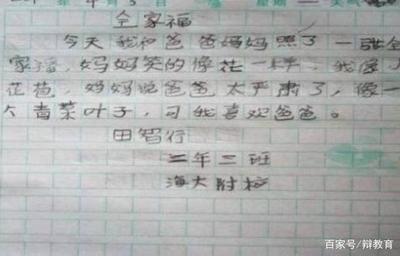 年 4月5日 天气
全家福
今天我和爸爸妈妈照了一张全
家福，妈妈笑的像花一样，我像
花苞，妈妈说爸爸太严肃了，像一
个青菜叶子，可我喜欢爸爸。
田智行
二年二班
海大附校
百家号/辩教育